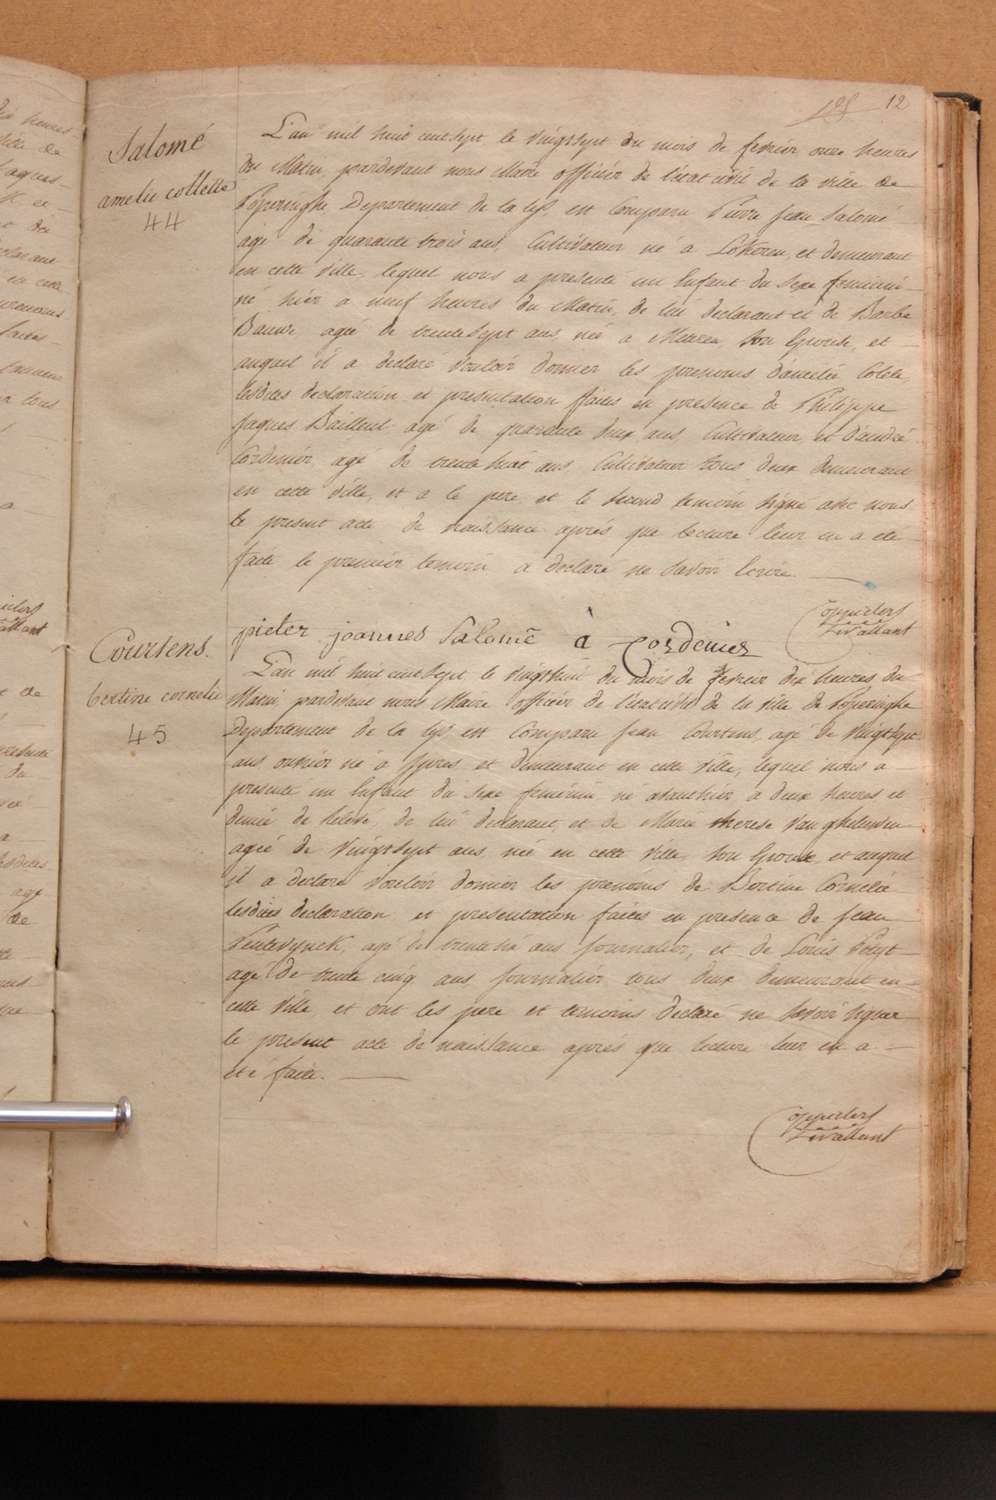 12
Salomé
amelie collette
44
L'an mil huit cent sept le vingt sept du mois de fevrier onze heures
du Matin, pardevant nous Maire officier de l'état civil de la ville de
Poperinghe, Departement de la Lys, est Comparu Pierre Jean Salomé
agé de quarante trois ans, Cultivateur né a Lokeren, et demeurant
en cette ville, lequel nous a presenté un Enfant du sexe feminin
né hier a neuf heures du Matin, de lui declarant et de Barbe
agée de trente sept ans, née a son Epouse, et
auquel il a declaré vouloir donner les prenoms d'amelie Colette
lesdites declaration et presentation faites en presence de Philippe
Jaques Bailleul agé de quarante deux ans, Cultivateur, et d'andré
Cordenier, agé de trente huit ans, Cultivateur tous deux demeurant
en cette ville, et a le pere, et le second temoin signé avec nous
le present acte de naissance aprés que lecture leur en a été
faite le premier temoin a declaré ne savoir Ecrire.
pieter joannes Salomé à Cordenier
Courtens.
bertine cornelie
45
L'an mil huit cent sept le vingt huit du Mois de fevrier dix heures du
Matin, pardevant nous Maire officier de l'état civil de la ville de Poperinghe
Departement de la Lys, est Comparu Jean Courtens, agé de vingt sept
ans ouvrier né a Ypres, et demeurant en cette ville, lequel nous a
presenté un Enfant du sexe feminin né avanthier a deux heures et
demie de relevée, de lui declarant, et de Marie therese Vanghelewen
agée de vingt sept ans, née en cette ville, son Epouse, et auquel
il a declaré vouloir donner les prenoms de Bertine Cornelie
lesdites declaration et presentation faites en presence de Jean
agé de trente ans journalier, et de Louis
agé de trente cinq ans, journalier tous deux demeurant en
cette ville, et ont les pere et temoins declaré ne savoir signer
le present acte de naissance aprés que lecture leur en a
été faite.